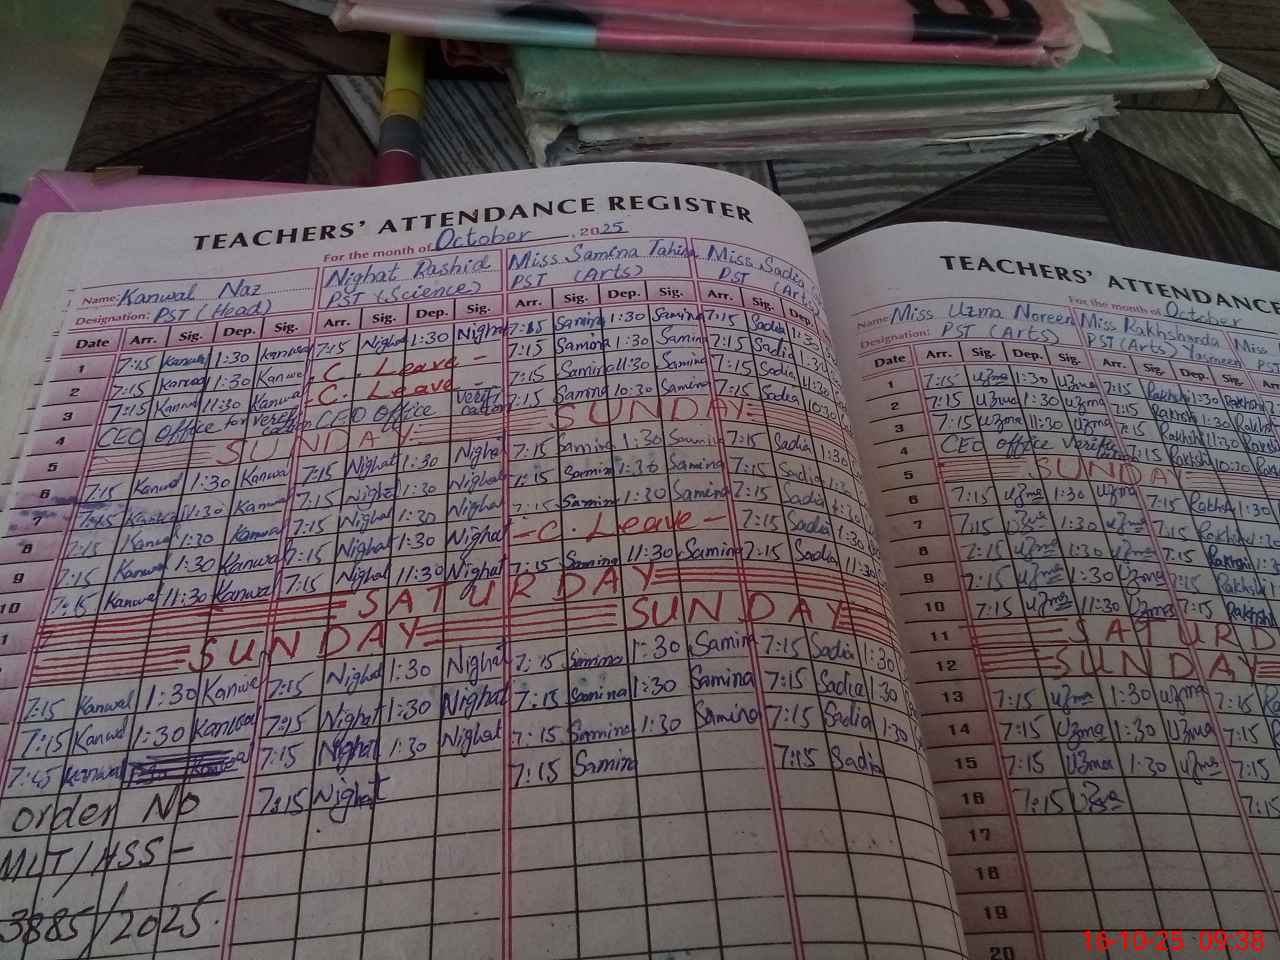 TEACHERS' ATTENDANCE REGISTER
For the month of October 2025
Name: Kanwal Naz Nighat Rashid Miss Samina Tahir Miss Sadia
Designation: PST (Head) PST (Science) PST (Arts) PST (Arts)
Date Arr. Sig. Dep. Sig. Arr. Sig. Dep. Sig. Arr. Sig. Dep. Sig. Arr. Sig. Dep.
1 7:15 Kanwal 1:30 Kanwal 7:15 Nighat 1:30 Nighat 7:15 Samina 1:30 Samina 7:15 Sadia 1:30
2 7:15 Kanwal 1:30 Kanwal C. Leave - 7:15 Samina 1:30 Samina 7:15 Sadia 1:30
3 7:15 Kanwal 11:30 Kanwal C. Leave - 7:15 Samina 11:30 Samina 7:15 Sadia 11:30
4 CEO office for verification CEO Office verification 7:15 Samina 10:30 Samina 7:15 Sadia 10:30
5 SUNDAY SUNDAY
6 7:15 Kanwal 1:30 Kanwal 7:15 Nighat 1:30 Nighat 7:15 Samina 1:30 Samina 7:15 Sadia 1:30
7 7:15 Kanwal 1:30 Kanwal 7:15 Nighat 1:30 Nighat 7:15 Samina 1:30 Samina 7:15 Sadia 1:30
8 7:15 Kanwal 1:30 Kanwal 7:15 Nighat 1:30 Nighat 7:15 Samina 1:30 Samina 7:15 Sadia
9 7:15 Kanwal 1:30 Kanwal 7:15 Nighat 1:30 Nighat - C Leave - 7:15 Sadia 1:30
10 7:15 Kanwal 11:30 Kanwal 7:15 Nighat 11:30 Nighat 7:15 Samina 11:30 Samina 7:15 Sadia
SATURDAY
SUNDAY SUNDAY
7:15 Kanwal 1:30 Kanwal 7:15 Nighat 1:30 Nighat 7:15 Samina 1:30 Samina 7:15 Sadia 1:30
7:15 Kanwal 1:30 Kanwal 7:15 Nighat 1:30 Nighat 7:15 Samina 1:30 Samina 7:15 Sadia 1:30
7:45 Kanwal 7:15 Nighat 1:30 Nighat 7:15 Samina 1:30 Samina 7:15 Sadia 1:30
order No 7:15 Nighat 7:15 Samina 7:15 Sadia
MLT/HSS-
3885/2025.
TEACHERS' ATTENDANCE
For the month of October
Name Miss Uzma Noreen Miss Rakhshanda Miss
Designation: PST (Arts) PST (Arts) Yasmeen PST
Date Arr. Sig. Dep. Sig. Arr. Sig. Dep. Sig.
1 7:15 Uzma 1:30 Uzma 7:15 Rakhshi 1:30 Rakhshi
2 7:15 Uzma 1:30 Uzma 7:15 Rakhshi 1:30 Rakhshi
3 7:15 Uzma 11:30 Uzma 7:15 Rakhshi 11:30 Rakhshi
4 CEO office 7:15 Rakhshi 10:30 Rakhshi
5 SUNDAY
6 7:15 Uzma 1:30 Uzma 7:15 Rakhshi 1:30
7 7:15 Uzma 1:30 Uzma 7:15 Rakhshi 1:30
8 7:15 Uzma 1:30 Uzma 7:15 Rakhshi
9 7:15 Uzma 1:30 Uzma 7:15 Rakhshi
10 7:15 Uzma 11:30 Uzma 7:15 Rakhshi
11 SATURD
12 SUNDAY
13 7:15 Uzma 1:30 Uzma 7:15
14 7:15 Uzma 1:30 Uzma 7:15
15 7:15 Uzma 1:30 Uzma 7:15
16 7:15 Uzma 7:15
17
18
19
20
16-10-25 09:38